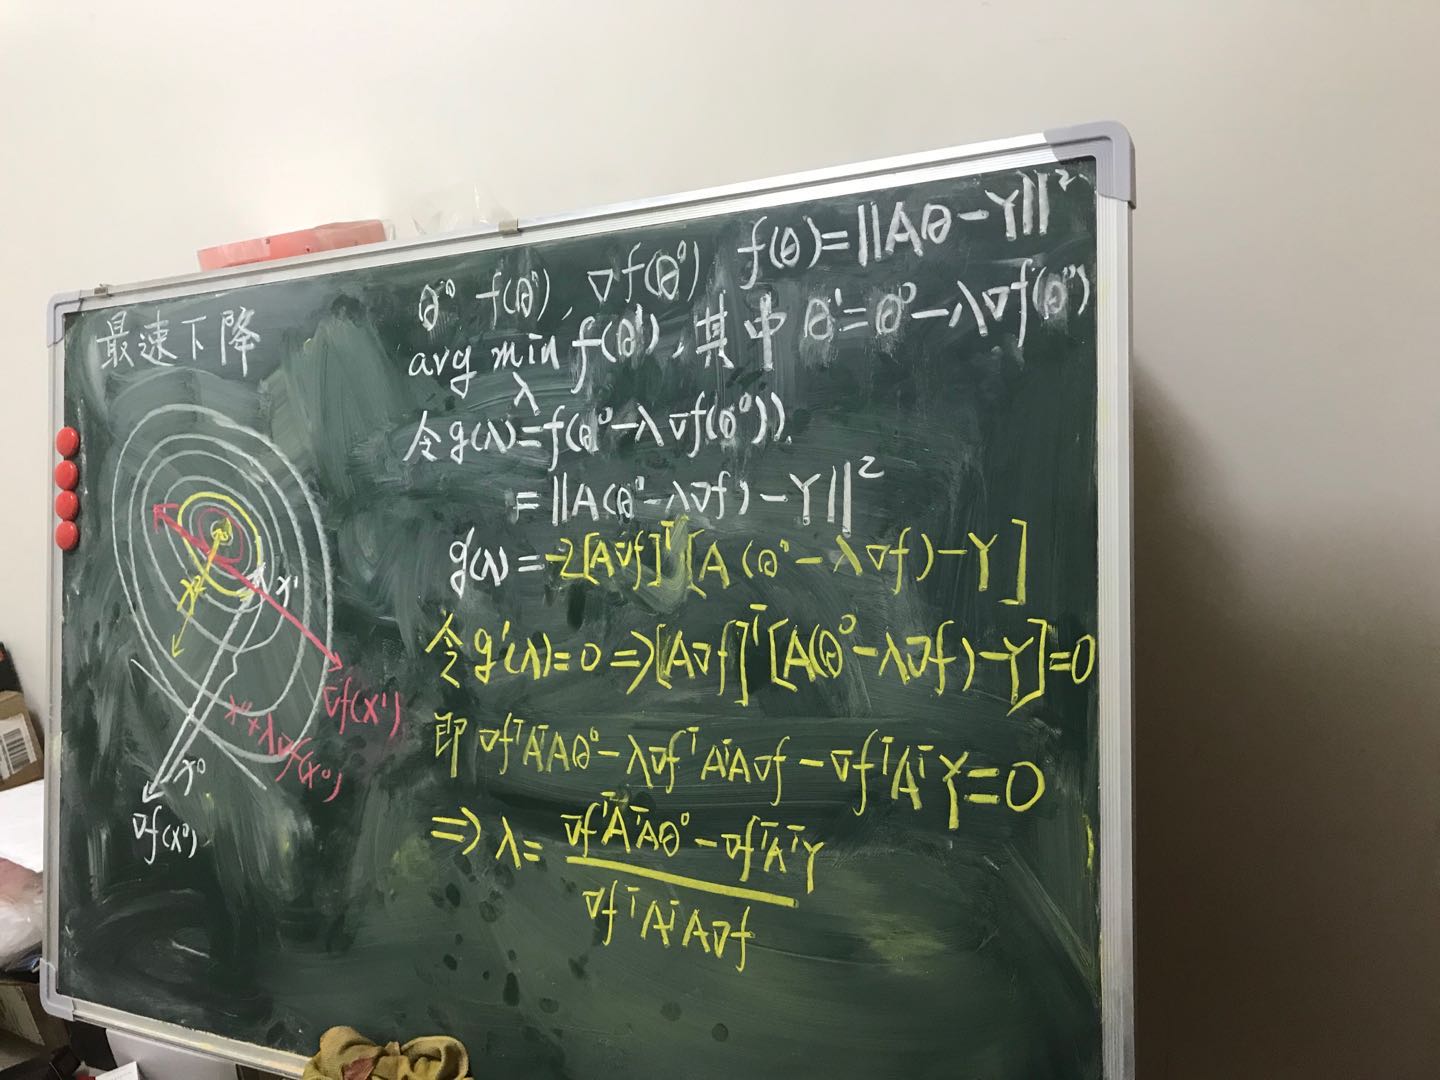 最速下降
θ⁰ f(θ⁰), ∇f(θ⁰) f(θ)=||Aθ-Y||²
arg min f(θ¹), 其中 θ¹=θ⁰-λ∇f(θ⁰)
λ
令g(λ)=f(θ⁰-λ∇f(θ⁰)).
=||A(θ⁰-λ∇f)-Y||²
g'(λ)=-2[A∇f]ᵀ[A(θ⁰-λ∇f)-Y]
令g'(λ)=0⇒[A∇f]ᵀ[A(θ⁰-λ∇f)-Y]=0
即 ∇fᵀAᵀAθ⁰-λ∇fᵀAᵀA∇f-∇fᵀAᵀY=0
⇒ λ= ∇fᵀAᵀAθ⁰-∇fᵀAᵀY
∇fᵀAᵀA∇f
x¹
x²
∇f(x¹)
x⁰+λ∇f(x⁰)
x⁰
∇f(x⁰)